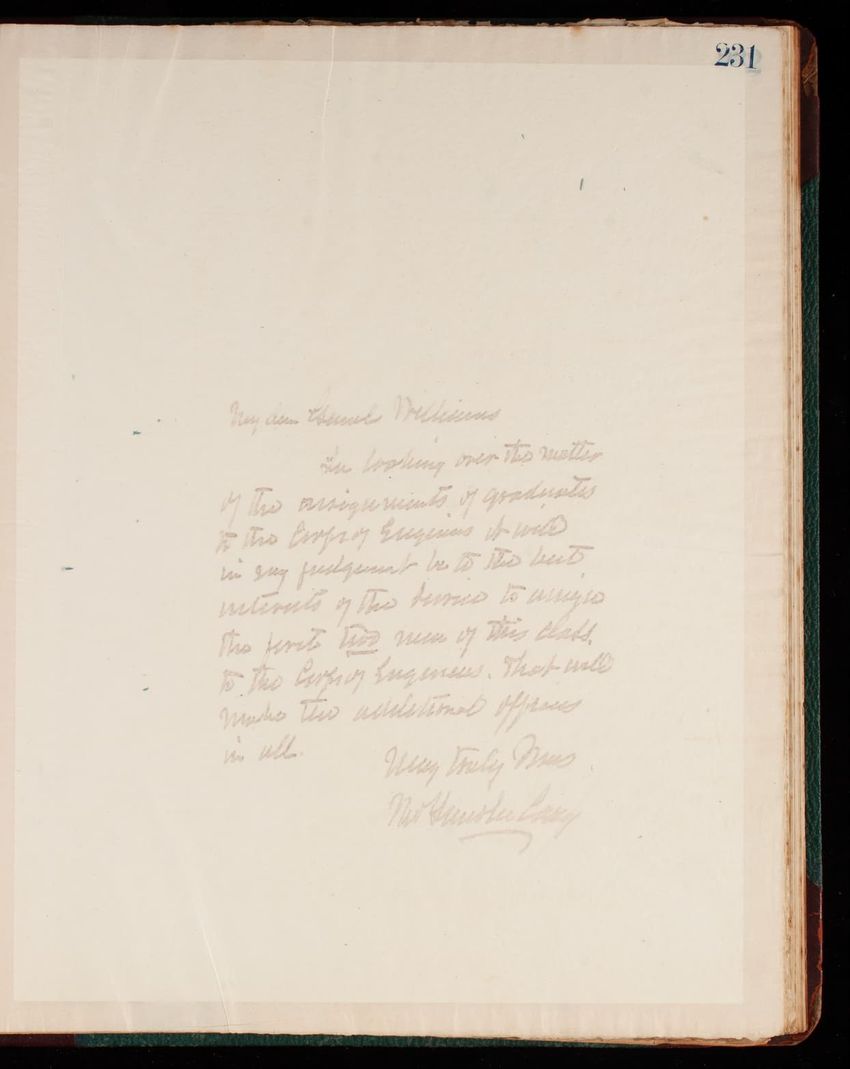 231
My dear General Williams
In looking over the matter
of the assignments of graduates
to the Corps of Engineers it will
in my judgment be to the best
interests of the Service to assign
the first two men of this class.
to the Corps of Engineers. That will
make two additional officers
in all.
Very truly Yours
Thos Lincoln Casey